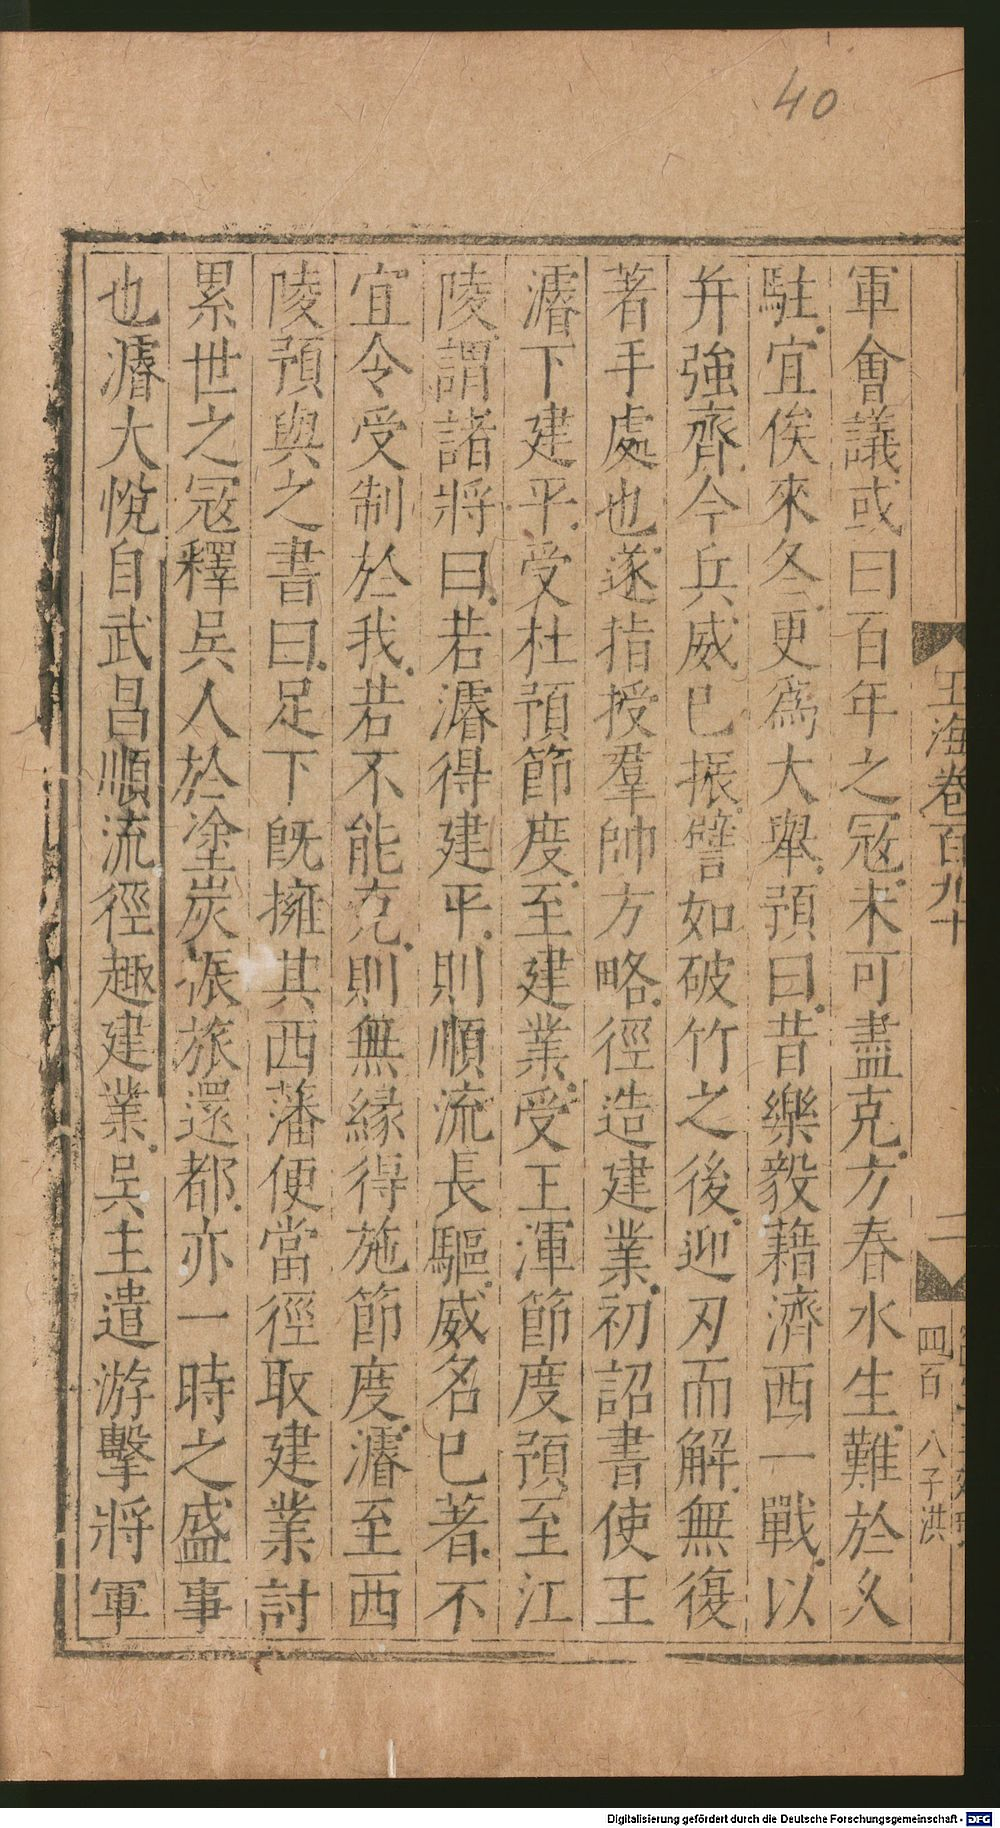 40
玉海卷百九十
二
四百
八子洪
軍會議或曰百年之冦未可盡克方春水生難於久
駐宜俟來冬更爲大舉預曰昔樂毅藉濟西一戰以
幷強齊今兵威已振譬如破竹之後迎刃而解無復
著手處也遂指授羣帥方略徑造建業初詔書使王
濬下建平受杜預節度至建業受王渾節度預至江
陵謂諸將曰若濬得建平則順流長驅威名已著不
宜令受制於我若不能克則無縁得施節度濬至西
陵預與之書曰足下旣擁其西藩便當徑取建業討
累世之冦釋吳人於塗炭振旅還都亦一時之盛事
也濬大悅自武昌順流徑趣建業吳主遣游擊將軍
Digitalisierung gefördert durch die Deutsche Forschungsgemeinschaft - DFG